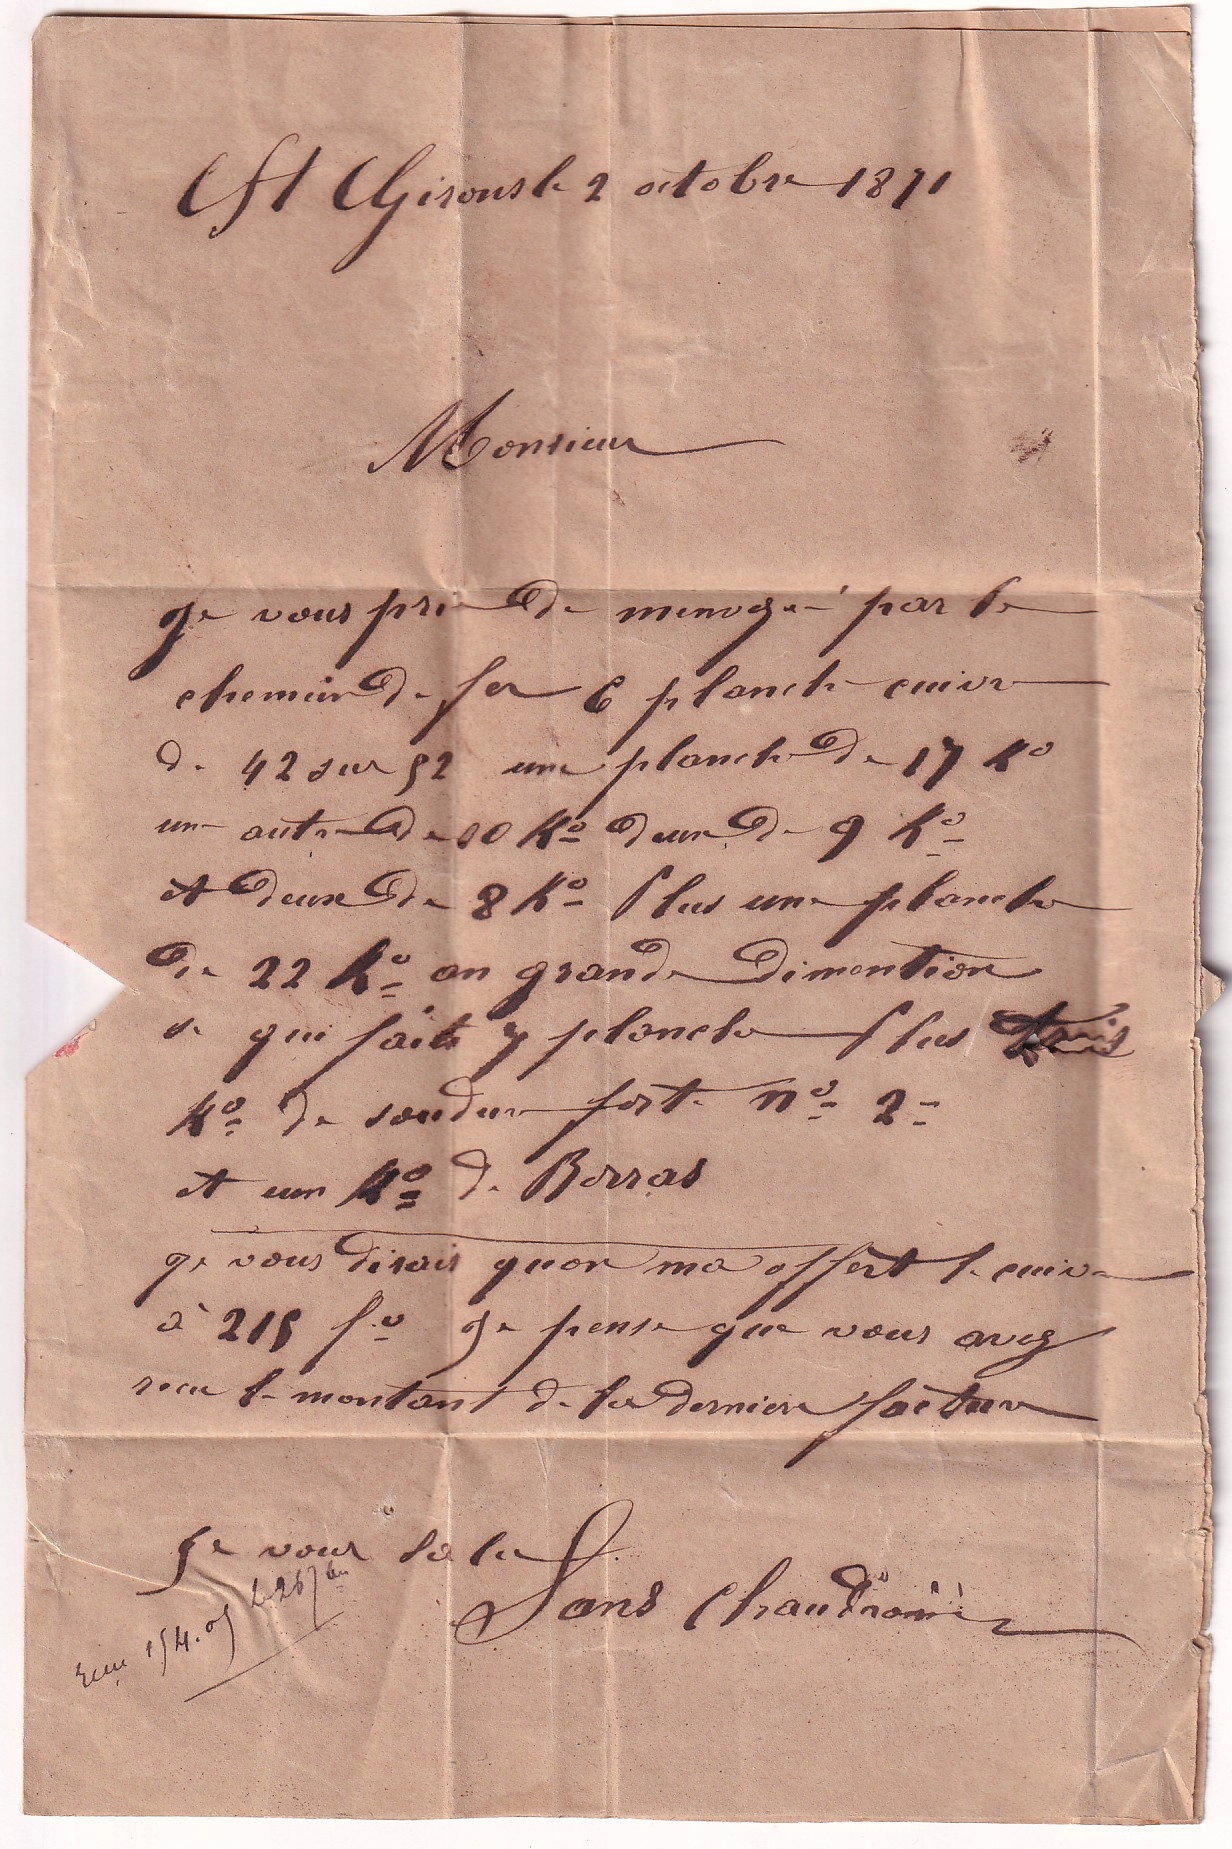 St Girons le 2 octobre 1871
Monsieur
Je vous prie de menvoyé par le
chemin de fer 6 planche cuivre
de 42 sur 52 une planche de 17 Ko
une autre de 10 Ko deux de 9 Ko
et deux de 8 Ko Plus une planche
de 22 Ko en grande dimention
se qui fait 7 planche Plus trois
Ko de soudure forte no 2
et un Ko de Borras
ge vous dirais quon ma offert le cuivre
à 215 fo ge pense que vous avez
recu le montant de la derniere facture
Je vous salue
Sans Chaudronier
154.05 le 26 7bre